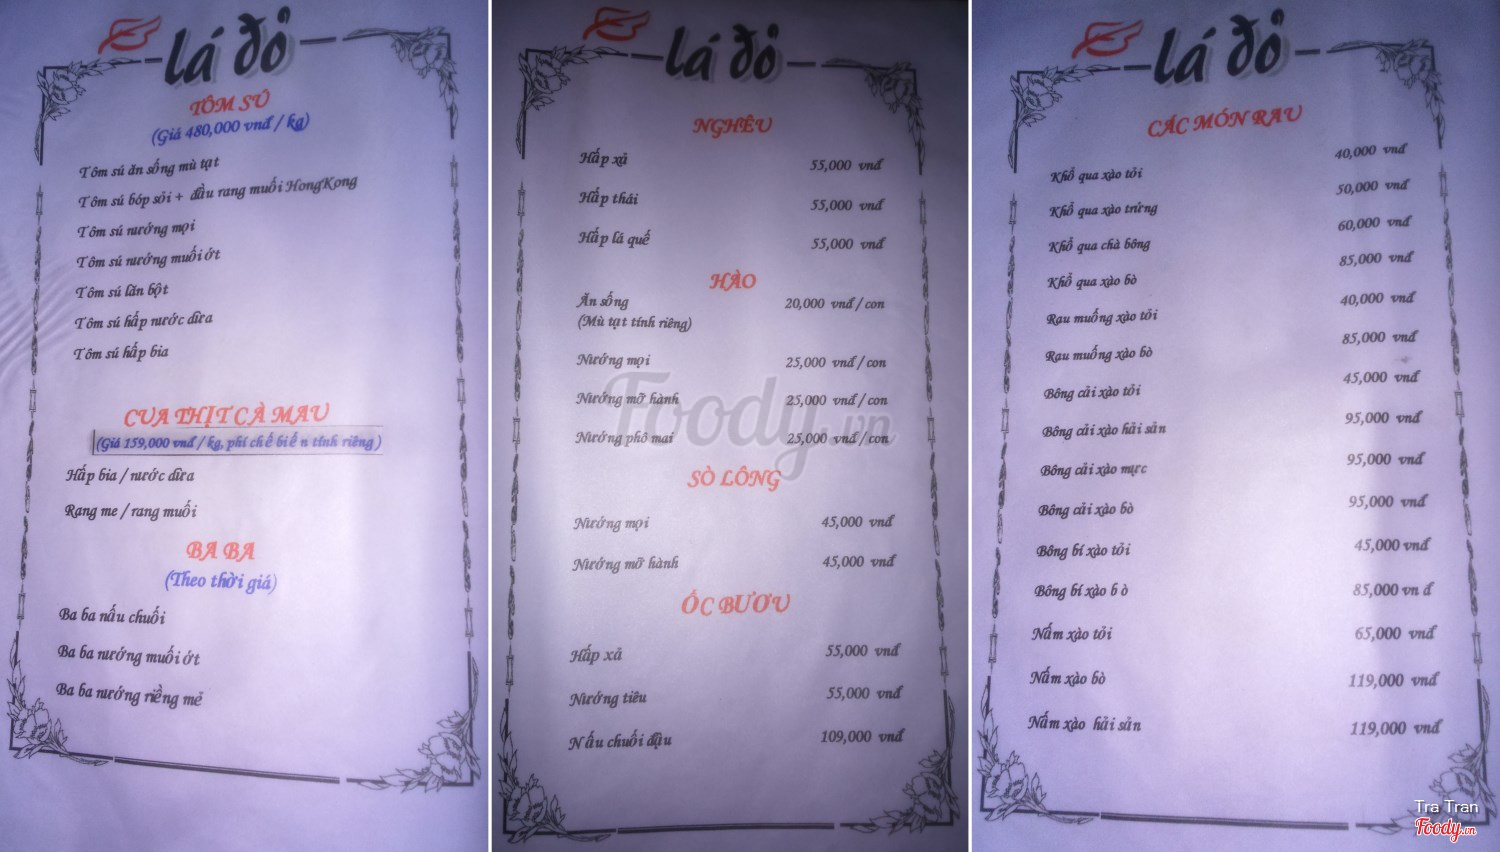 lá đỏ
TÔM SÚ
(Giá 480,000 vnđ / kg)
Tôm sú ăn sống mù tạt
Tôm sú bóp sỏi + đầu rang muối HongKong
Tôm sú nướng mọi
Tôm sú nướng muối ớt
Tôm sú lăn bột
Tôm sú hấp nước dừa
Tôm sú hấp bia
CUA THỊT CÀ MAU
(Giá 159,000 vnđ / kg, phí chế biến tính riêng)
Hấp bia / nước dừa
Rang me / rang muối
BA BA
(Theo thời giá)
Ba ba nấu chuối
Ba ba nướng muối ớt
Ba ba nướng riềng mẻ
lá đỏ
NGHÊU
Hấp xả 55,000 vnđ
Hấp thái 55,000 vnđ
Hấp lá quế 55,000 vnđ
HÀO
Ăn sống 20,000 vnđ / con
(Mù tạt tính riêng)
Nướng mọi 25,000 vnđ / con
Nướng mỡ hành 25,000 vnđ / con
Nướng phô mai 25,000 vnđ / con
SÒ LÔNG
Nướng mọi 45,000 vnđ
Nướng mỡ hành 45,000 vnđ
ỐC BƯƠU
Hấp xả 55,000 vnđ
Nướng tiêu 55,000 vnđ
Nấu chuối đậu 109,000 vnđ
Foody.vn
lá đỏ
CÁC MÓN RAU
Khổ qua xào tỏi 40,000 vnđ
Khổ qua xào trứng 50,000 vnđ
Khổ qua chà bông 60,000 vnđ
Khổ qua xào bò 85,000 vnđ
Rau muống xào tỏi 40,000 vnđ
Rau muống xào bò 85,000 vnđ
Bông cải xào tỏi 45,000 vnđ
Bông cải xào hải sản 95,000 vnđ
Bông cải xào mực 95,000 vnđ
Bông cải xào bò 95,000 vnđ
Bông bí xào tỏi 45,000 vnđ
Bông bí xào b ò 85,000 vn đ
Nấm xào tỏi 65,000 vnđ
Nấm xào bò 119,000 vnđ
Nấm xào hải sản 119,000 vnđ
Tra Tran
Foody.vn